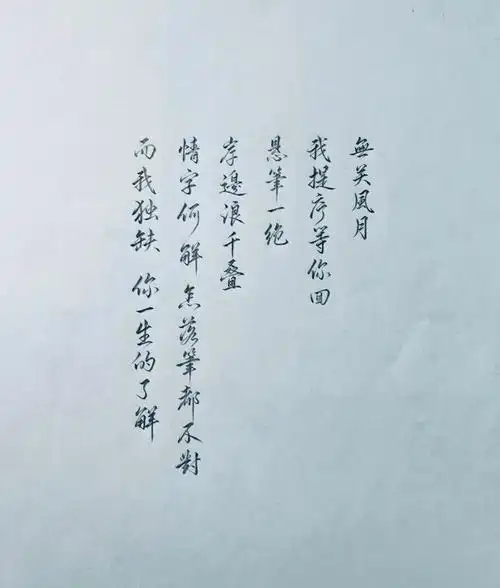 無关風月
我提序等你回
悬筆一绝
岸邊浪千叠
情字何解 怎落筆都不對
而我独缺 你一生的了解